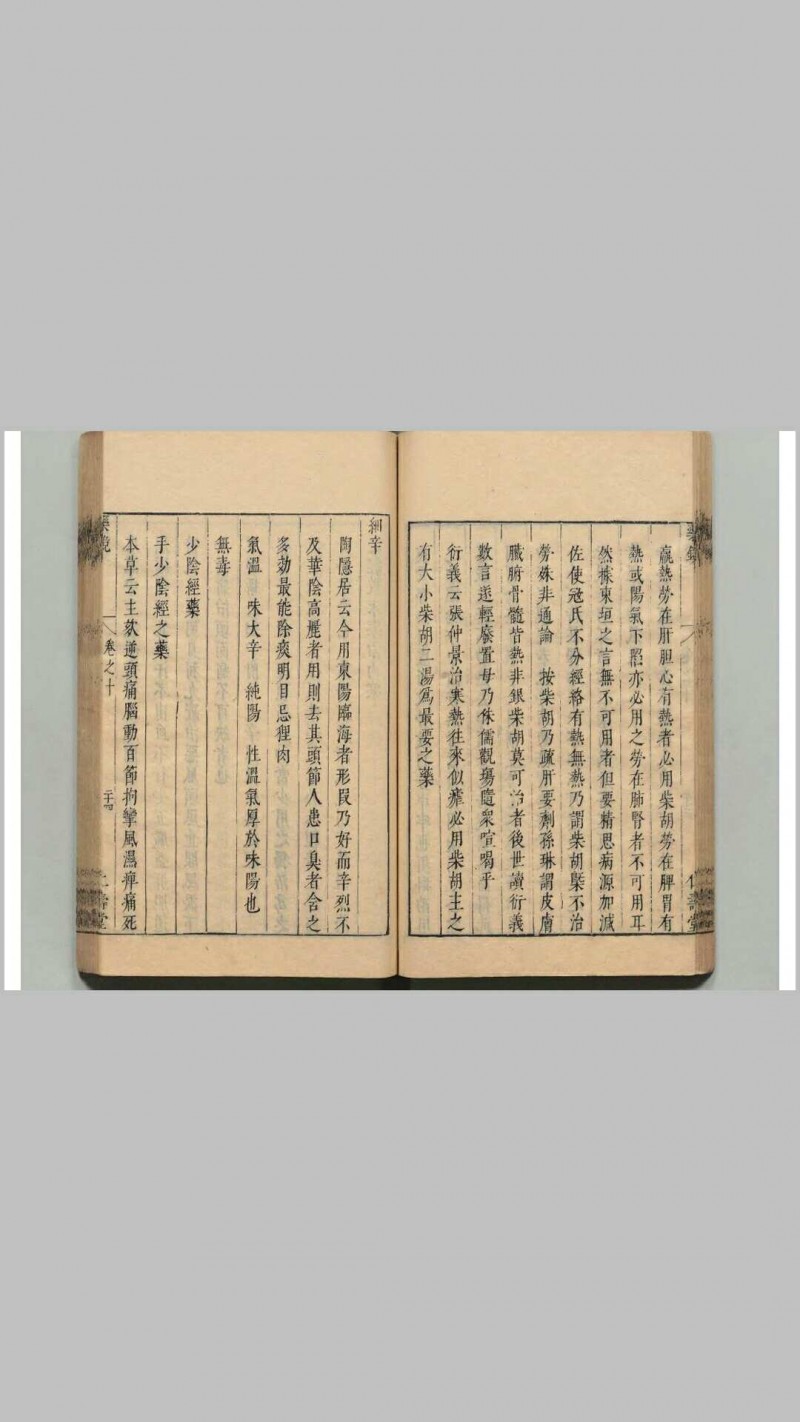 羸熱勞在肝胆心有熱者必用柴胡勞在脾胃有
熱或陽氣下陷亦必用之勞在肺腎者不可用耳
然㨿東垣之言無不可用者但要精思病源加减
佐使冦氏不分經絡有熱無熱乃謂柴胡槩不治
勞殊非通論　按柴胡乃疏肝要劑孫琳謂皮膚
臓腑骨髓皆熱非銀柴胡莫可治者後世讀衍義
數言遂輕廢置毋乃侏儒觀塲隨衆喧喝乎
衍義云張仲景治寒熱往來似瘧必用柴胡主之
有大小柴胡二湯爲最要之藥
細辛
陶隱居云今用東陽臨海者形段乃好而辛烈不
及華陰高麗者用則去其頭節人患口臭者含之
多効最能除痰明目忌狸肉
氣温　味大辛　純陽　性温氣厚於味陽也
無毒
少陰經藥
手少陰經之藥
本草云主欬逆頭痛腦動百節拘攣風濕痺痛死
卷之十
二十四